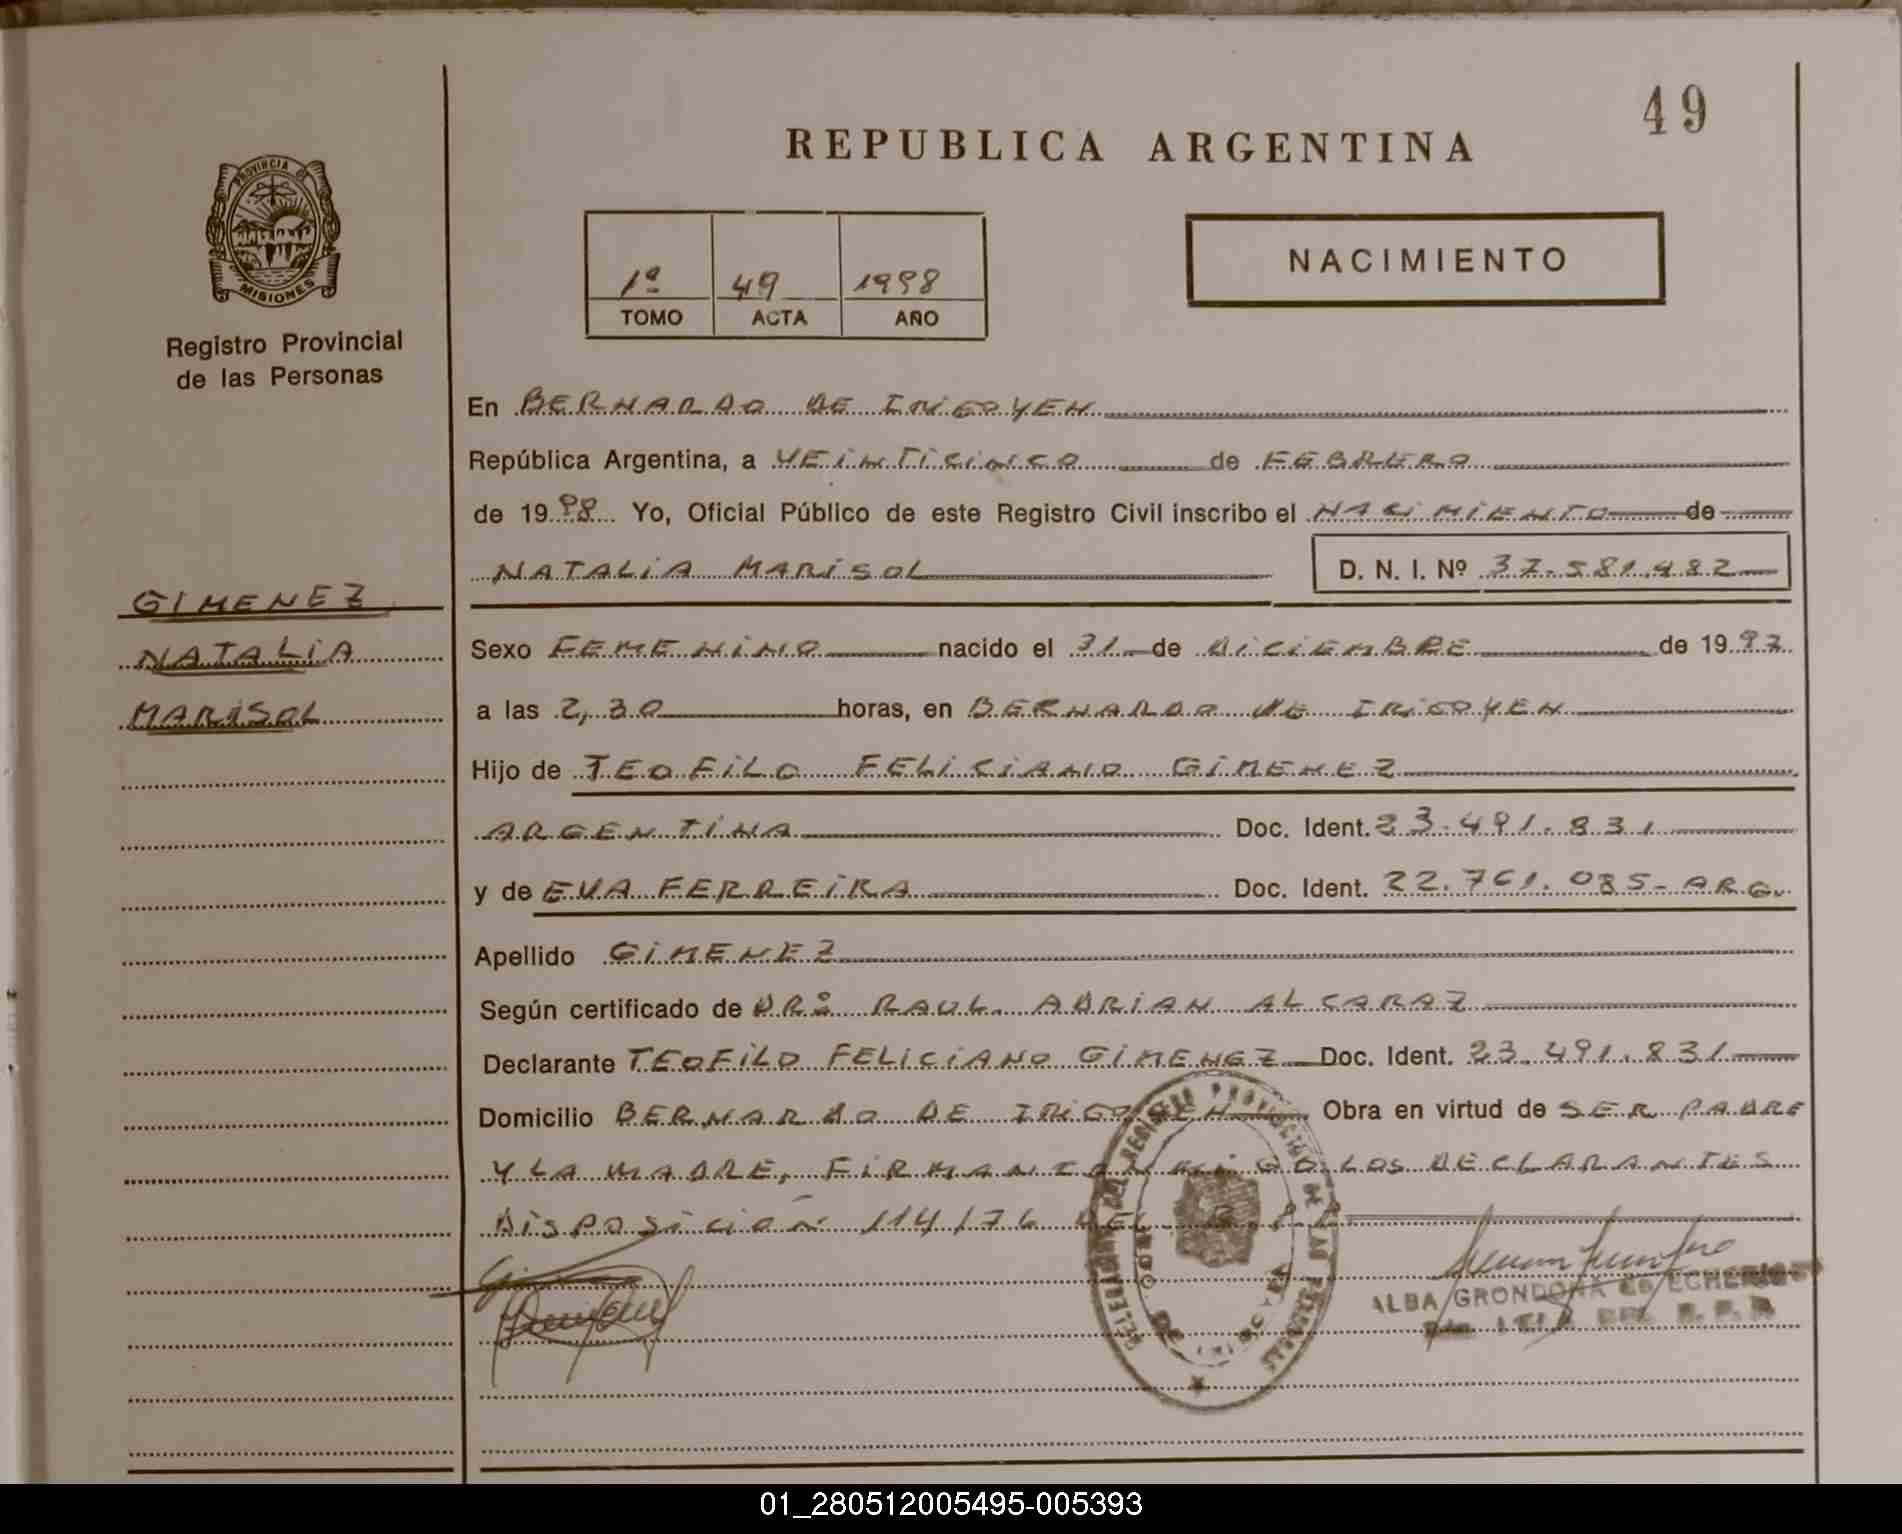 49
REPUBLICA ARGENTINA
PROVINCIA DE
MISIONES
Registro Provincial
de las Personas
1º 49 1998
TOMO ACTA AÑO
NACIMIENTO
En BERNARDO DE IRIGOYEN
República Argentina, a VEINTICINCO de FEBRERO
de 1998 Yo, Oficial Público de este Registro Civil inscribo el NACIMIENTO de
NATALIA MARISOL D. N. I. Nº 37.581.482
GIMENEZ
NATALIA
MARISOL
Sexo FEMENINO nacido el 31 de DICIEMBRE de 1997
a las 2,30 horas, en BERNARDO DE IRIGOYEN
Hijo de TEOFILO FELICIANO GIMENEZ
ARGENTINA Doc. Ident. 23.491.831
y de EVA FERREIRA Doc. Ident. 22.761.085- ARG.
Apellido GIMENEZ
Según certificado de DR: RAUL ADRIAN ALCARAZ
Declarante TEOFILO FELICIANO GIMENEZ Doc. Ident. 23.491.831
Domicilio BERNARDO DE IRIGOYEN Obra en virtud de SER PADRE
Y LA MADRE, FIRMAN CONMIGO LOS DECLARANTES
DISPOSICION 114/76 DEL R.P.P.
ALBA GRONDONA
01_280512005495-005393